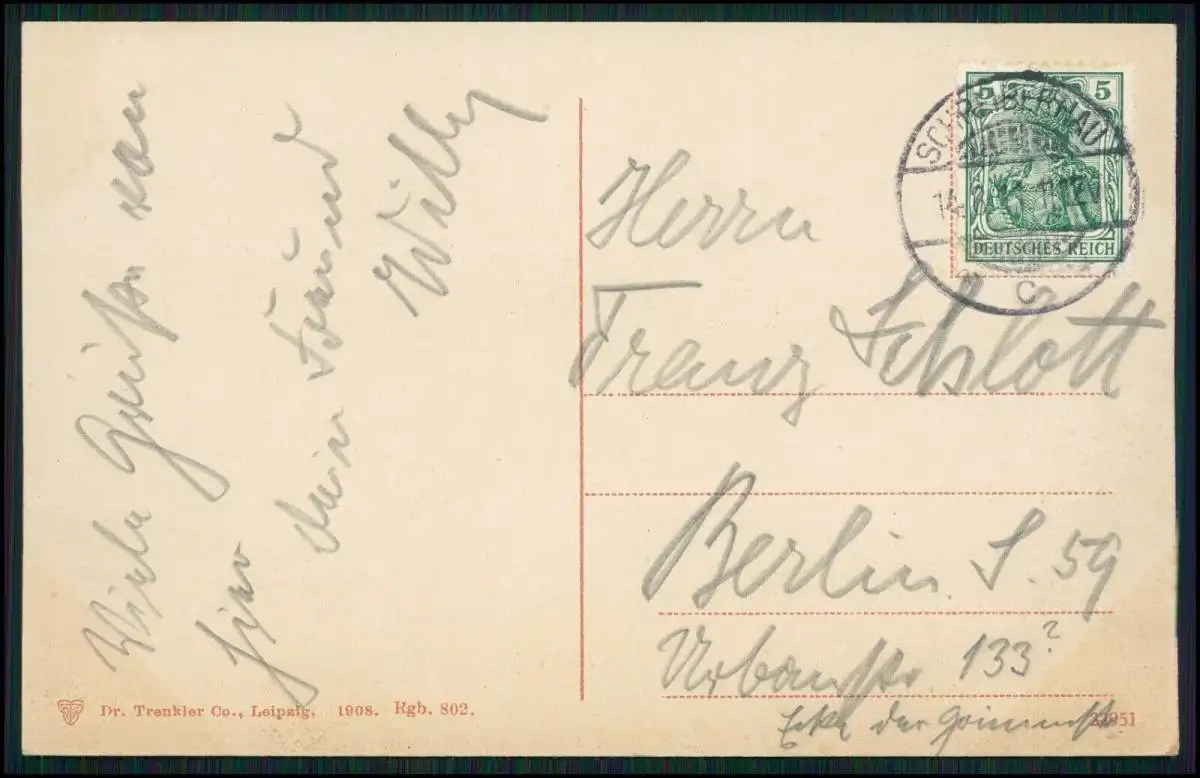 Viele Grüße von
hier
dein Freund
Willy
5 5
SCHREIBERHAU
DEUTSCHES REICH
C
Herrn
Franz Schlott
Berlin S. 59
Urbanstr. 133?
Ecke der Grimmstr.
Dr. Trenkler Co., Leipzig. 1908. Rgb. 802.
22951